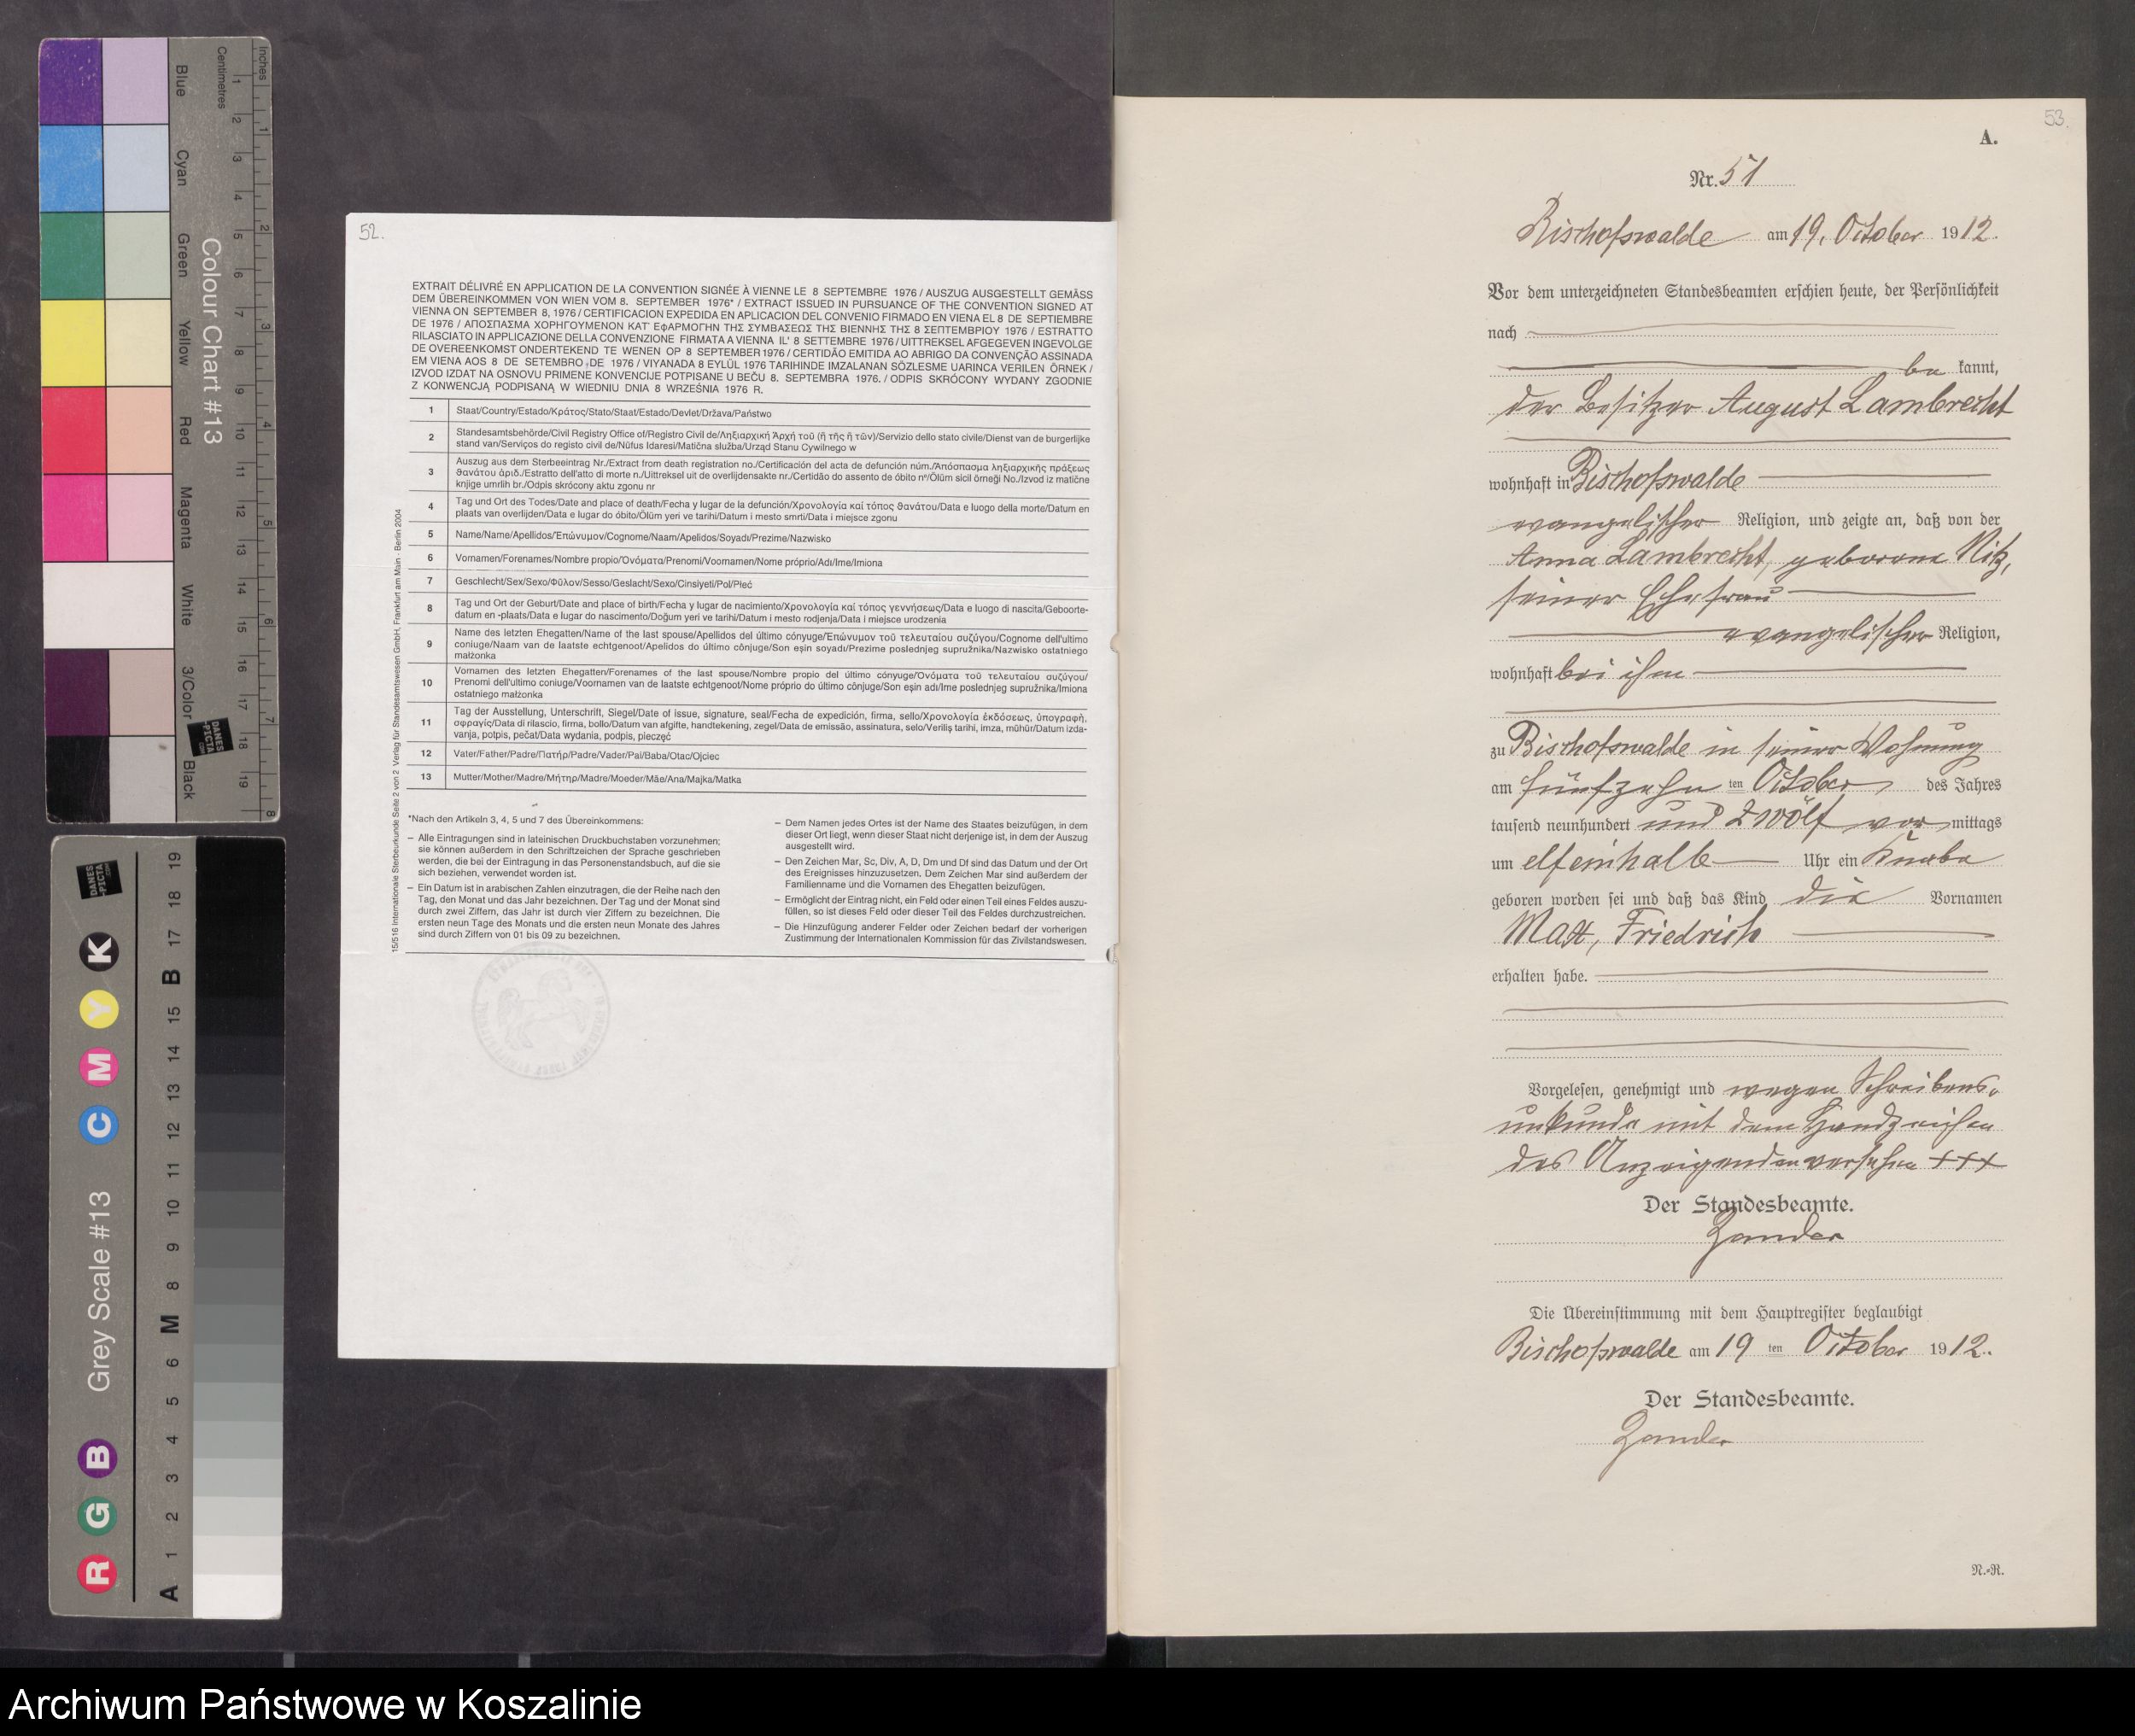 Inches
Centimetres
1 2 3 4 5 6 7 8 9 10 11 12 13 14 15 16 17 18 19
1 2 3 4 5 6 7 8
Colour Chart #13
Blue
Cyan
Green
Yellow
Red
Magenta
White
3/Color
Black
DANES
-PICTA
.COM
Grey Scale #13
R G B C M Y K
A 1 2 3 4 5 6 M 8 9 10 11 12 13 14 15 B 17 18 19
DANES
-PICTA
.COM
52.
EXTRAIT DÉLIVRÉ EN APPLICATION DE LA CONVENTION SIGNÉE À VIENNE LE 8 SEPTEMBRE 1976 / AUSZUG AUSGESTELLT GEMÄSS
DEM ÜBEREINKOMMEN VON WIEN VOM 8. SEPTEMBER 1976* / EXTRACT ISSUED IN PURSUANCE OF THE CONVENTION SIGNED AT
VIENNA ON SEPTEMBER 8, 1976 / CERTIFICACION EXPEDIDA EN APLICACION DEL CONVENIO FIRMADO EN VIENA EL 8 DE SEPTIEMBRE
DE 1976 / ΑΠΟΣΠΑΣΜΑ ΧΟΡΗΓΟΥΜΕΝΟΝ ΚΑΤ' ΕΦΑΡΜΟΓΗΝ ΤΗΣ ΣΥΜΒΑΣΕΩΣ ΤΗΣ ΒΙΕΝΝΗΣ ΤΗΣ 8 ΣΕΠΤΕΜΒΡΙΟΥ 1976 / ESTRATTO
RILASCIATO IN APPLICAZIONE DELLA CONVENZIONE FIRMATA A VIENNA IL' 8 SETTEMBRE 1976 / UITTREKSEL AFGEGEVEN INGEVOLGE
DE OVEREENKOMST ONDERTEKEND TE WENEN OP 8 SEPTEMBER 1976 / CERTIDÃO EMITIDA AO ABRIGO DA CONVENÇÃO ASSINADA
EM VIENA AOS 8 DE SETEMBRO DE 1976 / VIYANADA 8 EYLÜL 1976 TARIHINDE IMZALANAN SÖZLESME UARINCA VERILEN ÖRNEK /
IZVOD IZDAT NA OSNOVU PRIMENE KONVENCIJE POTPISANE U BEČU 8. SEPTEMBRA 1976. / ODPIS SKRÓCONY WYDANY ZGODNIE
Z KONWENCJĄ PODPISANĄ W WIEDNIU DNIA 8 WRZEŚNIA 1976 R.
1 Staat/Country/Estado/Κράτος/Stato/Staat/Estado/Devlet/Država/Państwo
2 Standesamtsbehörde/Civil Registry Office of/Registro Civil de/Ληξιαρχική Ἀρχή τοῦ (ἤ τῆς ἤ τῶν)/Servizio dello stato civile/Dienst van de burgerlijke
stand van/Serviços do registo civil de/Nüfus Idaresi/Matična služba/Urząd Stanu Cywilnego w
3 Auszug aus dem Sterbeeintrag Nr./Extract from death registration no./Certificación del acta de defunción núm./Ἀπόσπασμα ληξιαρχικῆς πράξεως
θανάτου ἀριθ./Estratto dell'atto di morte n./Uittreksel uit de overlijdensakte nr./Certidão do assento de óbito nº/Ölüm sicil örneği No./Izvod iz matične
knjige umrlih br./Odpis skrócony aktu zgonu nr
4 Tag und Ort des Todes/Date and place of death/Fecha y lugar de la defunción/Χρονολογία καί τόπος θανάτου/Data e luogo della morte/Datum en
plaats van overlijden/Data e lugar do óbito/Ölüm yeri ve tarihi/Datum i mesto smrti/Data i miejsce zgonu
5 Name/Name/Apellidos/Ἐπώνυμον/Cognome/Naam/Apelidos/Soyadı/Prezime/Nazwisko
6 Vornamen/Forenames/Nombre propio/Ὀνόματα/Prenomi/Voornamen/Nome próprio/Adı/Ime/Imiona
7 Geschlecht/Sex/Sexo/Φῦλον/Sesso/Geslacht/Sexo/Cinsiyeti/Pol/Płeć
8 Tag und Ort der Geburt/Date and place of birth/Fecha y lugar de nacimiento/Χρονολογία καί τόπος γεννήσεως/Data e luogo di nascita/Geboorte-
datum en -plaats/Data e lugar do nascimento/Doğum yeri ve tarihi/Datum i mesto rodjenja/Data i miejsce urodzenia
9 Name des letzten Ehegatten/Name of the last spouse/Apellidos del último cónyuge/Ἐπώνυμον τοῦ τελευταίου συζύγου/Cognome dell'ultimo
coniuge/Naam van de laatste echtgenoot/Apelidos do último cônjuge/Son eşin soyadı/Prezime poslednjeg supružnika/Nazwisko ostatniego
małżonka
10 Vornamen des letzten Ehegatten/Forenames of the last spouse/Nombre propio del último cónyuge/Ὀνόματα τοῦ τελευταίου συζύγου/
Prenomi dell'ultimo coniuge/Voornamen van de laatste echtgenoot/Nome próprio do último cônjuge/Son eşin adı/Ime poslednjeg supružnika/Imiona
ostatniego małżonka
11 Tag der Ausstellung, Unterschrift, Siegel/Date of issue, signature, seal/Fecha de expedición, firma, sello/Χρονολογία ἐκδόσεως, ὑπογραφή,
σφραγίς/Data di rilascio, firma, bollo/Datum van afgifte, handtekening, zegel/Data de emissão, assinatura, selo/Veriliş tarihi, imza, mühür/Datum izda-
vanja, potpis, pečat/Data wydania, podpis, pieczęć
12 Vater/Father/Padre/Πατήρ/Padre/Vader/Pai/Baba/Otac/Ojciec
13 Mutter/Mother/Madre/Μήτηρ/Madre/Moeder/Mãe/Ana/Majka/Matka
15/516 Internationale Sterbeurkunde Seite 2 von 2 Verlag für Standesamtswesen GmbH, Frankfurt am Main · Berlin 2004
*Nach den Artikeln 3, 4, 5 und 7 des Übereinkommens:
– Alle Eintragungen sind in lateinischen Druckbuchstaben vorzunehmen;
sie können außerdem in den Schriftzeichen der Sprache geschrieben
werden, die bei der Eintragung in das Personenstandsbuch, auf die sie
sich beziehen, verwendet worden ist.
– Ein Datum ist in arabischen Zahlen einzutragen, die der Reihe nach den
Tag, den Monat und das Jahr bezeichnen. Der Tag und der Monat sind
durch zwei Ziffern, das Jahr ist durch vier Ziffern zu bezeichnen. Die
ersten neun Tage des Monats und die ersten neun Monate des Jahres
sind durch Ziffern von 01 bis 09 zu bezeichnen.
– Dem Namen jedes Ortes ist der Name des Staates beizufügen, in dem
dieser Ort liegt, wenn dieser Staat nicht derjenige ist, in dem der Auszug
ausgestellt wird.
– Den Zeichen Mar, Sc, Div, A, D, Dm und Df sind das Datum und der Ort
des Ereignisses hinzuzusetzen. Dem Zeichen Mar sind außerdem der
Familienname und die Vornamen des Ehegatten beizufügen.
– Ermöglicht der Eintrag nicht, ein Feld oder einen Teil eines Feldes auszu-
füllen, so ist dieses Feld oder dieser Teil des Feldes durchzustreichen.
– Die Hinzufügung anderer Felder oder Zeichen bedarf der vorherigen
Zustimmung der Internationalen Kommission für das Zivilstandswesen.
53.
A.
Nr. 51
Bischofswalde am 19. October 1912.
Vor dem unterzeichneten Standesbeamten erschien heute, der Persönlichkeit
nach
be kannt,
der Besitzer August Lambrecht
wohnhaft in Bischofswalde
evangelischer Religion, und zeigte an, daß von der
Anna Lambrecht, geborene Nitz,
seiner Ehefrau
evangelischer Religion,
wohnhaft bei ihm
zu Bischofswalde in seiner Wohnung
am fünfzehn ten October des Jahres
tausend neunhundert und zwölf vor mittags
um elfeinhalb Uhr ein Knabe
geboren worden sei und daß das Kind die Vornamen
Max, Friedrich
erhalten habe.
Vorgelesen, genehmigt und wegen Schreibens-
unkunde mit dem Handzeichen
des Anzeigenden versehen +++
Der Standesbeamte.
Zander
Die Übereinstimmung mit dem Hauptregister beglaubigt
Bischofswalde am 19 ten October 1912.
Der Standesbeamte.
Zander
N.-R.
Archiwum Państwowe w Koszalinie